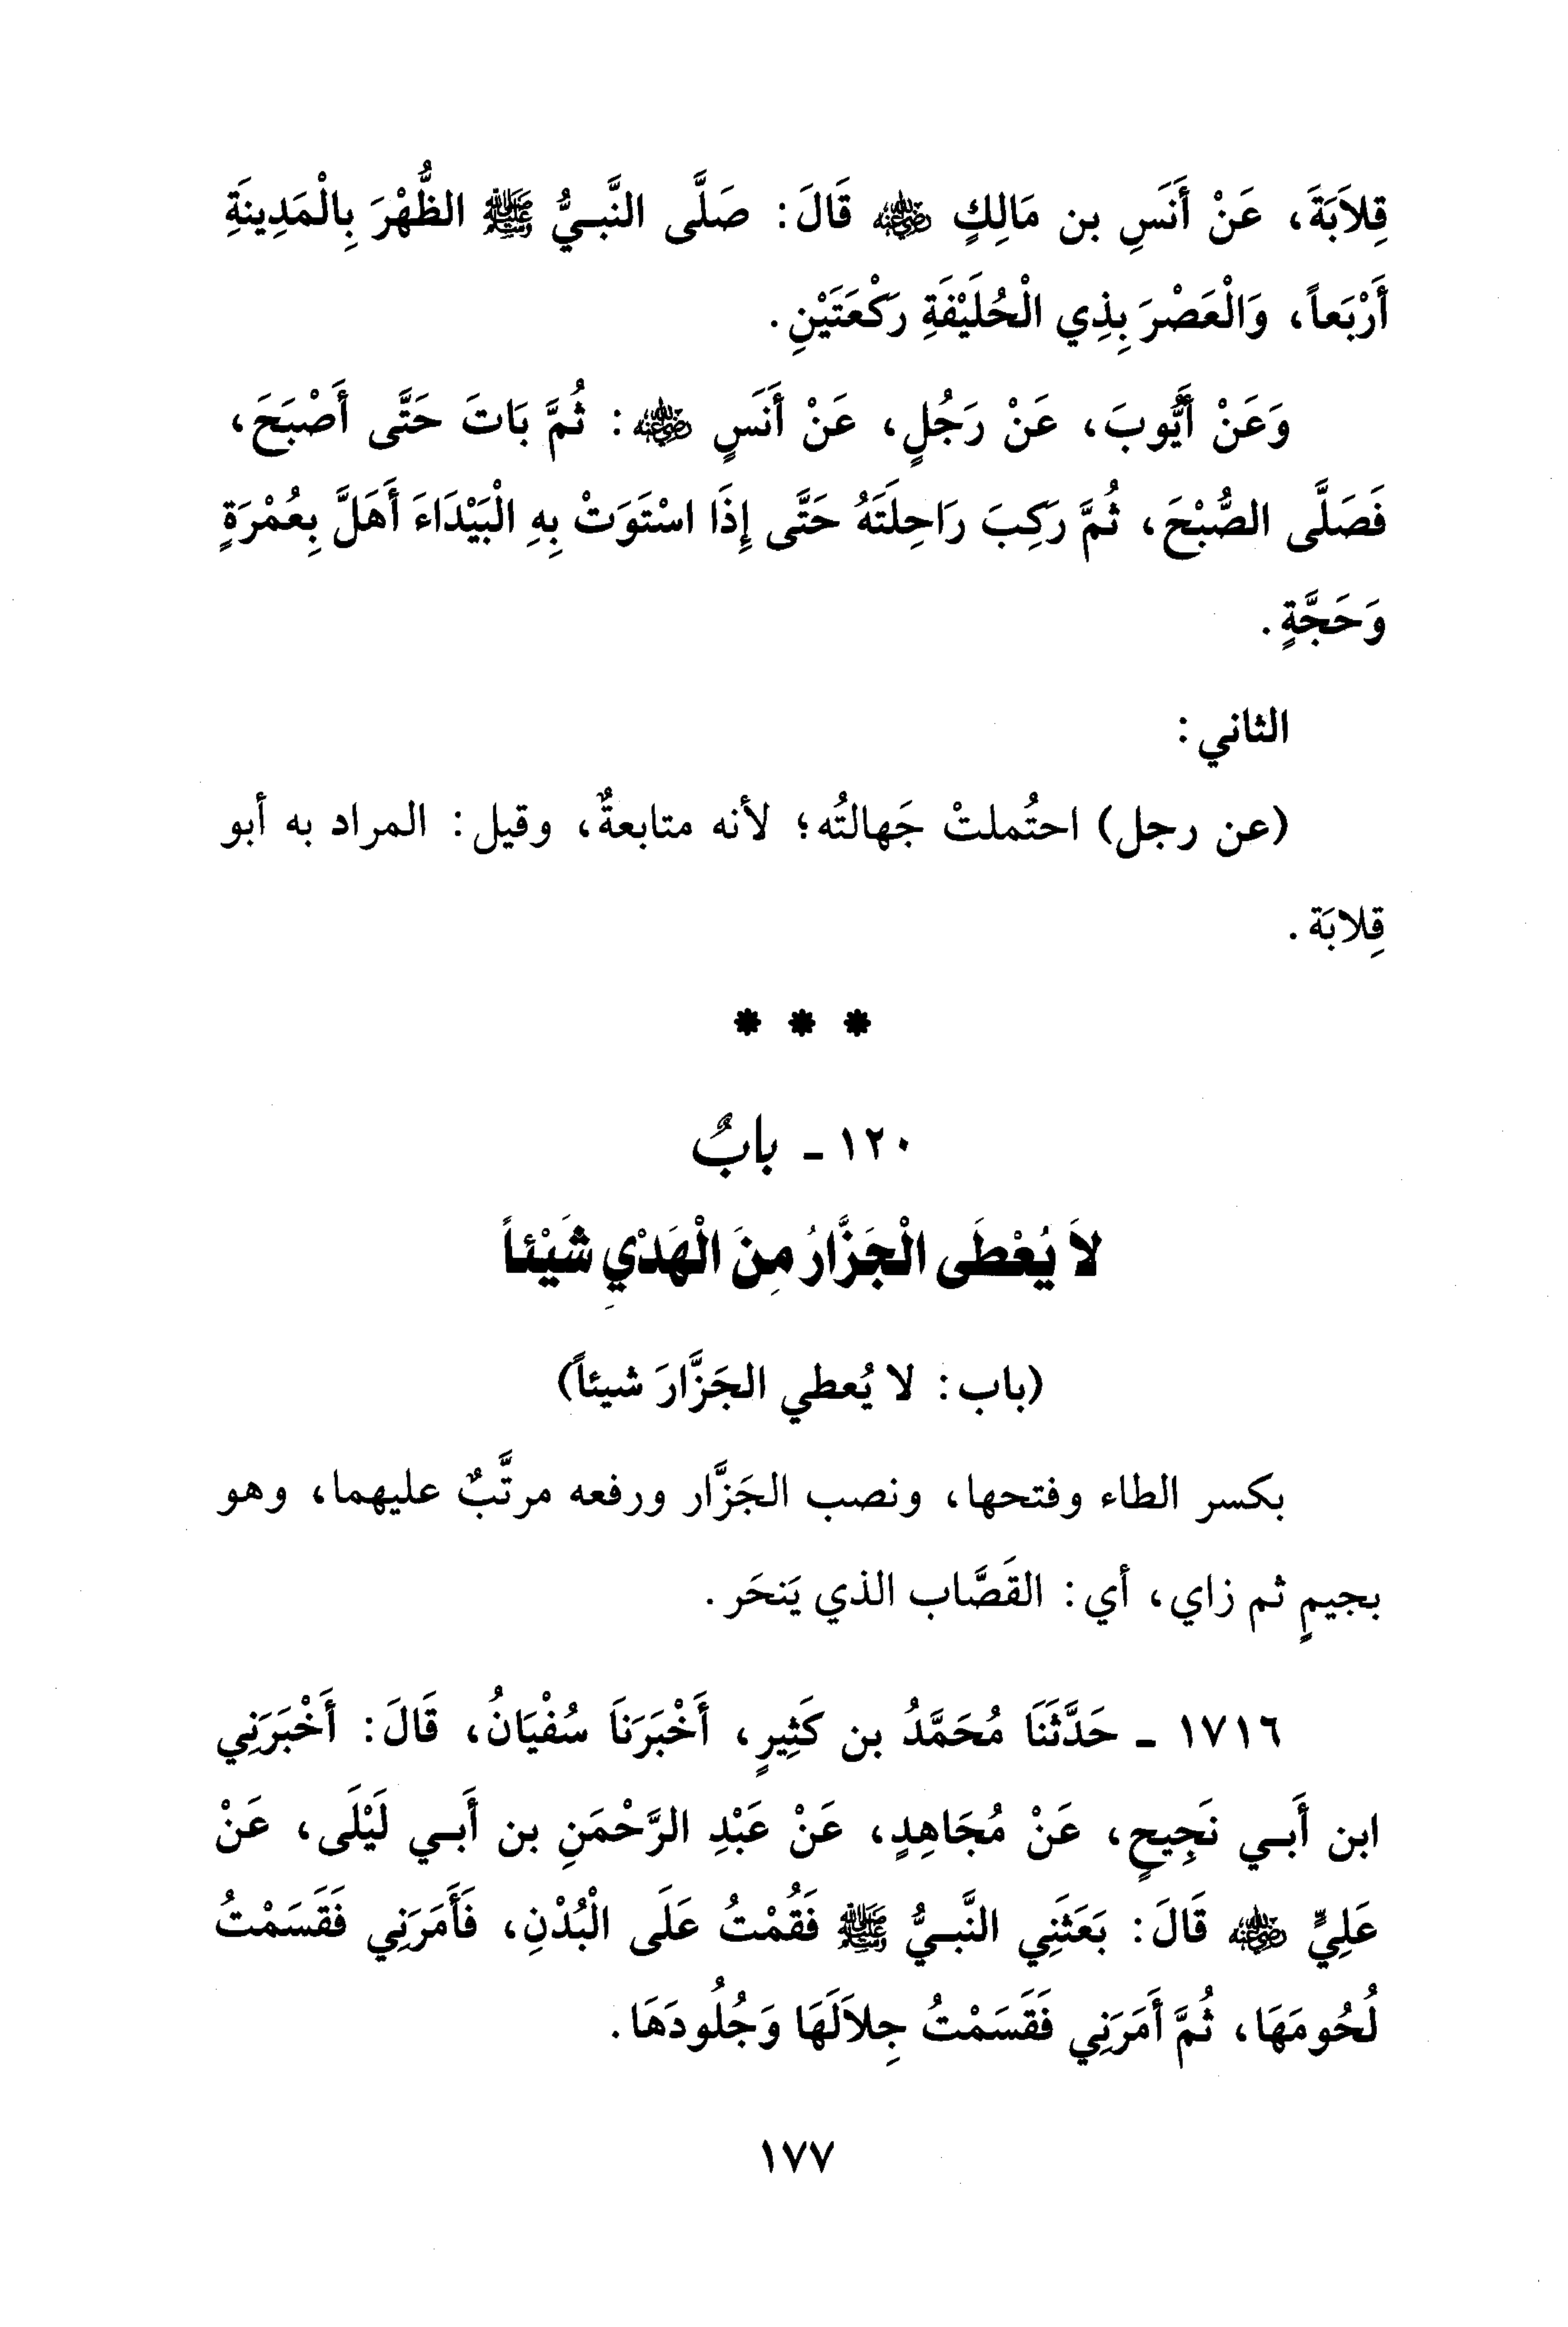 قِلاَبَةَ، عَنْ أَنَسِ بن مَالِكٍ ﵁ قَالَ: صَلَّى النَّبـيُّ ﷺ الظُّهْرَ بِالْمَدِينَةِ
أَرْبَعاً، وَالْعَصْرَ بِذِي الْحُلَيْفَةِ رَكْعَتَيْنِ.
وَعَنْ أَيُّوبَ، عَنْ رَجُلٍ، عَنْ أَنَسٍ ﵁: ثُمَّ بَاتَ حَتَّى أَصْبَحَ،
فَصَلَّى الصُّبْحَ، ثُمَّ رَكِبَ رَاحِلَتَهُ حَتَّى إِذَا اسْتَوَتْ بِهِ الْبَيْدَاءَ أَهَلَّ بِعُمْرَةٍ
وَحَجَّةٍ.
الثاني:
(عن رجل) احتُملتْ جَهالتُه؛ لأنه متابعةٌ، وقيل: المراد به أبو
قِلابَة.
* * *
١٢٠ - بابٌ
لاَ يُعْطَى الْجَزَّارُ مِنَ الْهَدْيِ شَيْئاً
(باب: لا يُعطي الجَزَّارَ شيئاً)
بكسر الطاء وفتحها، ونصب الجَزَّار ورفعه مرتَّبٌ عليهما، وهو
بجيمٍ ثم زاي، أي: القَصَّاب الذي يَنحَر.
١٧١٦ - حَدَّثَنَا مُحَمَّدُ بن كَثِيرٍ، أَخْبَرَنَا سُفْيَانُ، قَالَ: أَخْبَرَنِي
ابن أَبـي نَجِيحٍ، عَنْ مُجَاهِدٍ، عَنْ عَبْدِ الرَّحْمَنِ بن أَبـي لَيْلَى، عَنْ
عَلِيٍّ ﵁ قَالَ: بَعَثَنِي النَّبـيُّ ﷺ فَقُمْتُ عَلَى الْبُدْنِ، فَأَمَرَنِي فَقَسَمْتُ
لُحُومَهَا، ثُمَّ أَمَرَنِي فَقَسَمْتُ جِلاَلَهَا وَجُلُودَهَا.
١٧٧